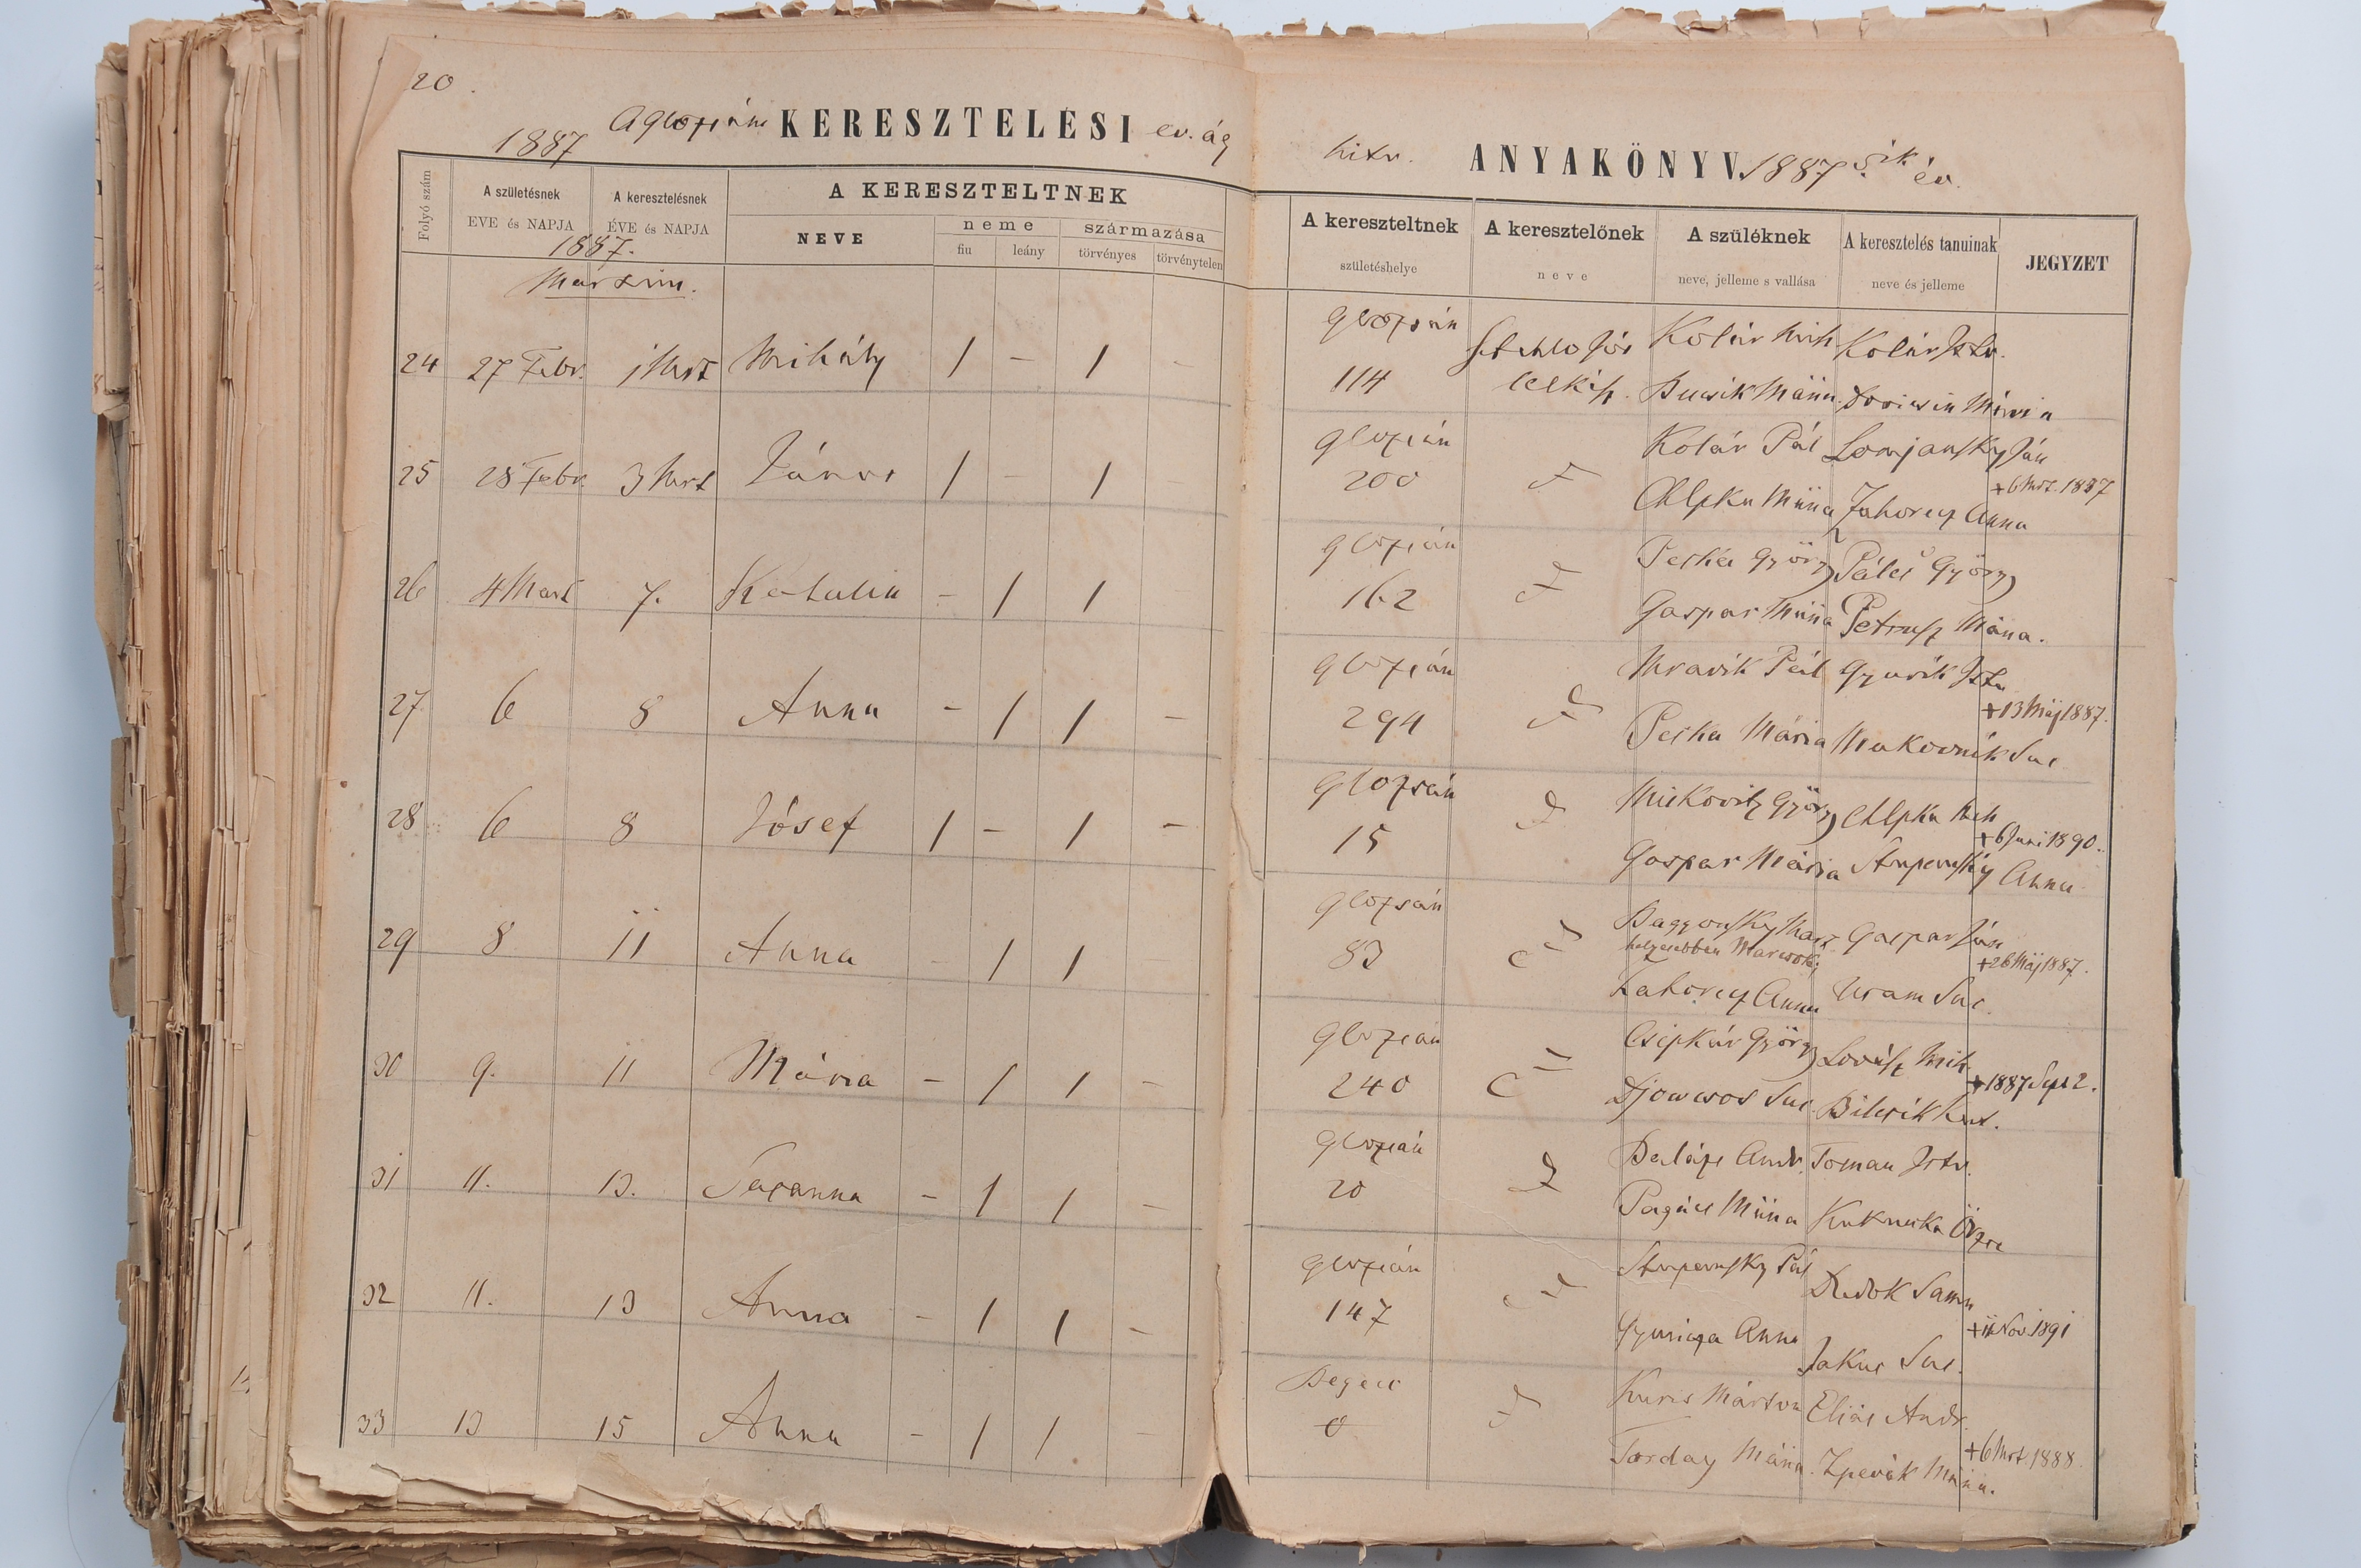 20.
1887 A glozsáni KERESZTELÉSI ev. ág
hitv. ANYAKÖNYV 1887 sik év.
Folyó szám
A születésnek
EVE és NAPJA
A keresztelésnek
ÉVE és NAPJA
1887.
A KERESZTELTNEK
NEVE
neme
fiu
leány
származása
törvényes
törvénytelen
A kereszteltnek
születéshelye
A keresztelőnek
neve
A szüléknek
neve, jelleme s vallása
A keresztelés tanuinak
neve és jelleme
JEGYZET
24 27 Febr. 1 Mart Mihály 1 – 1 –
Glozsán Kolár Mih Kolár Istv.
114 lelkész. Mária
25 28 Febr. 3 Mart János 1 – 1 –
Glozsán Kolár Pál Lomjansky Ján
200 Chlpka Mária Zahorecz Anna +6 Mrt. 1887
26 4 Mart 7. Katalin – 1 1
Glozsán Peska György Páles György
162 Gaspar Mária Petrusz Mária.
27 6 8 Anna – 1 1 –
Glozsán Mravik Pál Gyurik Istv
294 Peska Mária Makovnik Sus. +13 Máj 1887.
28 6 8 Jósef 1 – 1 –
Glozsán Miskovitz György Chlpka Mih
15 Gaspar Mária Stupavszky Anna +6 Juni 1890.
29 8 11 Anna – 1 1 –
Glozsán Gaspar Ján
83 helyesebben Marcsok +26 Máj 1887.
Zahorecz Anna Uram Sus.
30 9. 11 Mária – 1 1 –
Glozsán Csipkár György Lovász Mih.
240 Sus. Bilcsik Kat. +1887 Sept 2.
31 11. 13. Susanna – 1 1 –
Glozsán Balázs Andr. Toman Istv.
20 Pagács Mária Kukucska Örzse
32 11. 13 Anna – 1 1 –
Glozsán Stupavszky Pál Dudok Samu
147 Gyuricza Anna Jakus Sus. +11 Nov. 1891
33 13 15 Anna – 1 1 –
Begecs Kuris Márton Eliás Andr.
0 Torday Mária. Zpevák Mária. +6 Mrt. 1888.